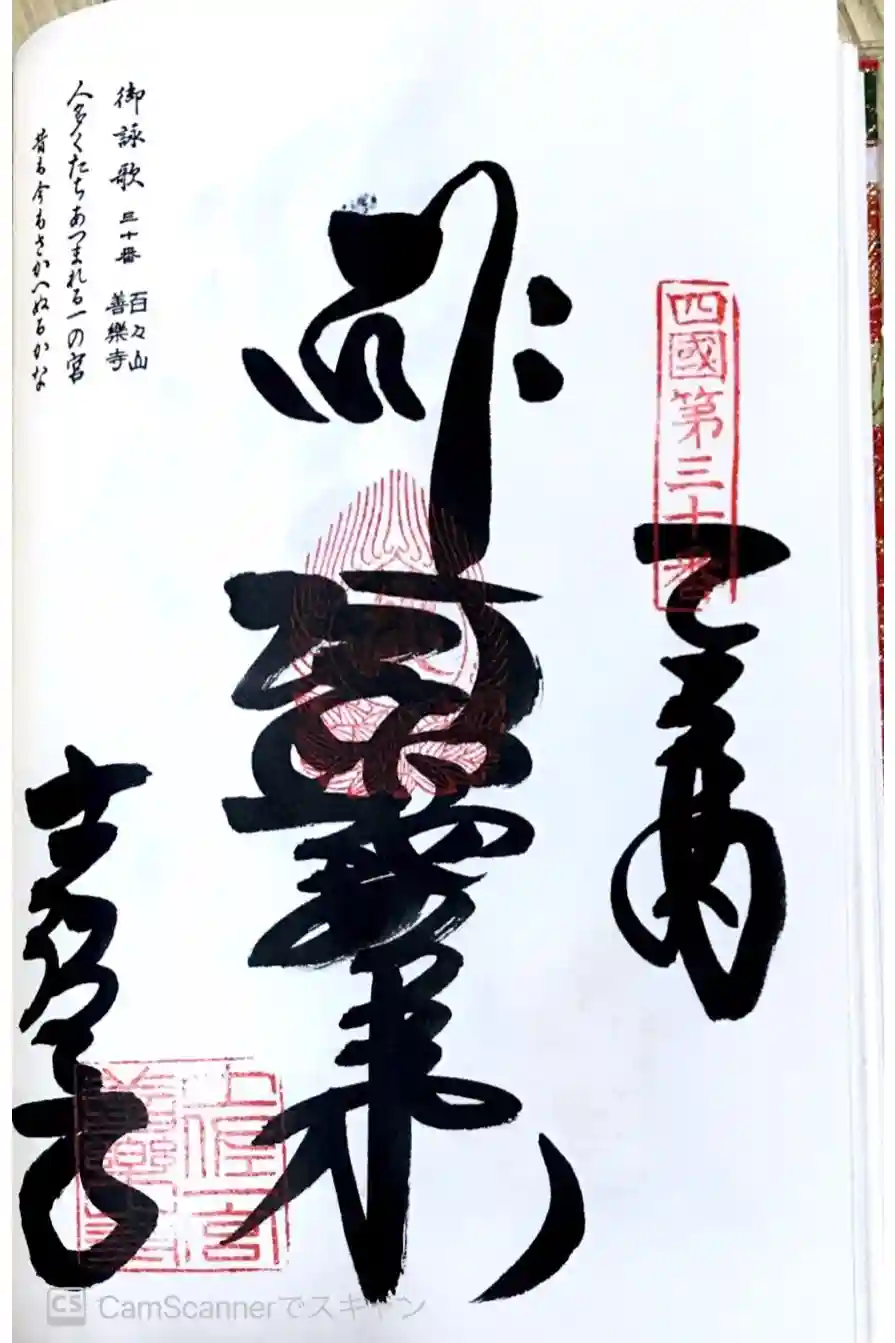 四國第三十番
奉納
阿弥陀如来
善楽寺
土佐一宮
善樂寺
御詠歌 三十番 百々山
善樂寺
人多くたちあつまれる一の宮
昔も今もさかへぬるかな
CS CamScannerでスキャン